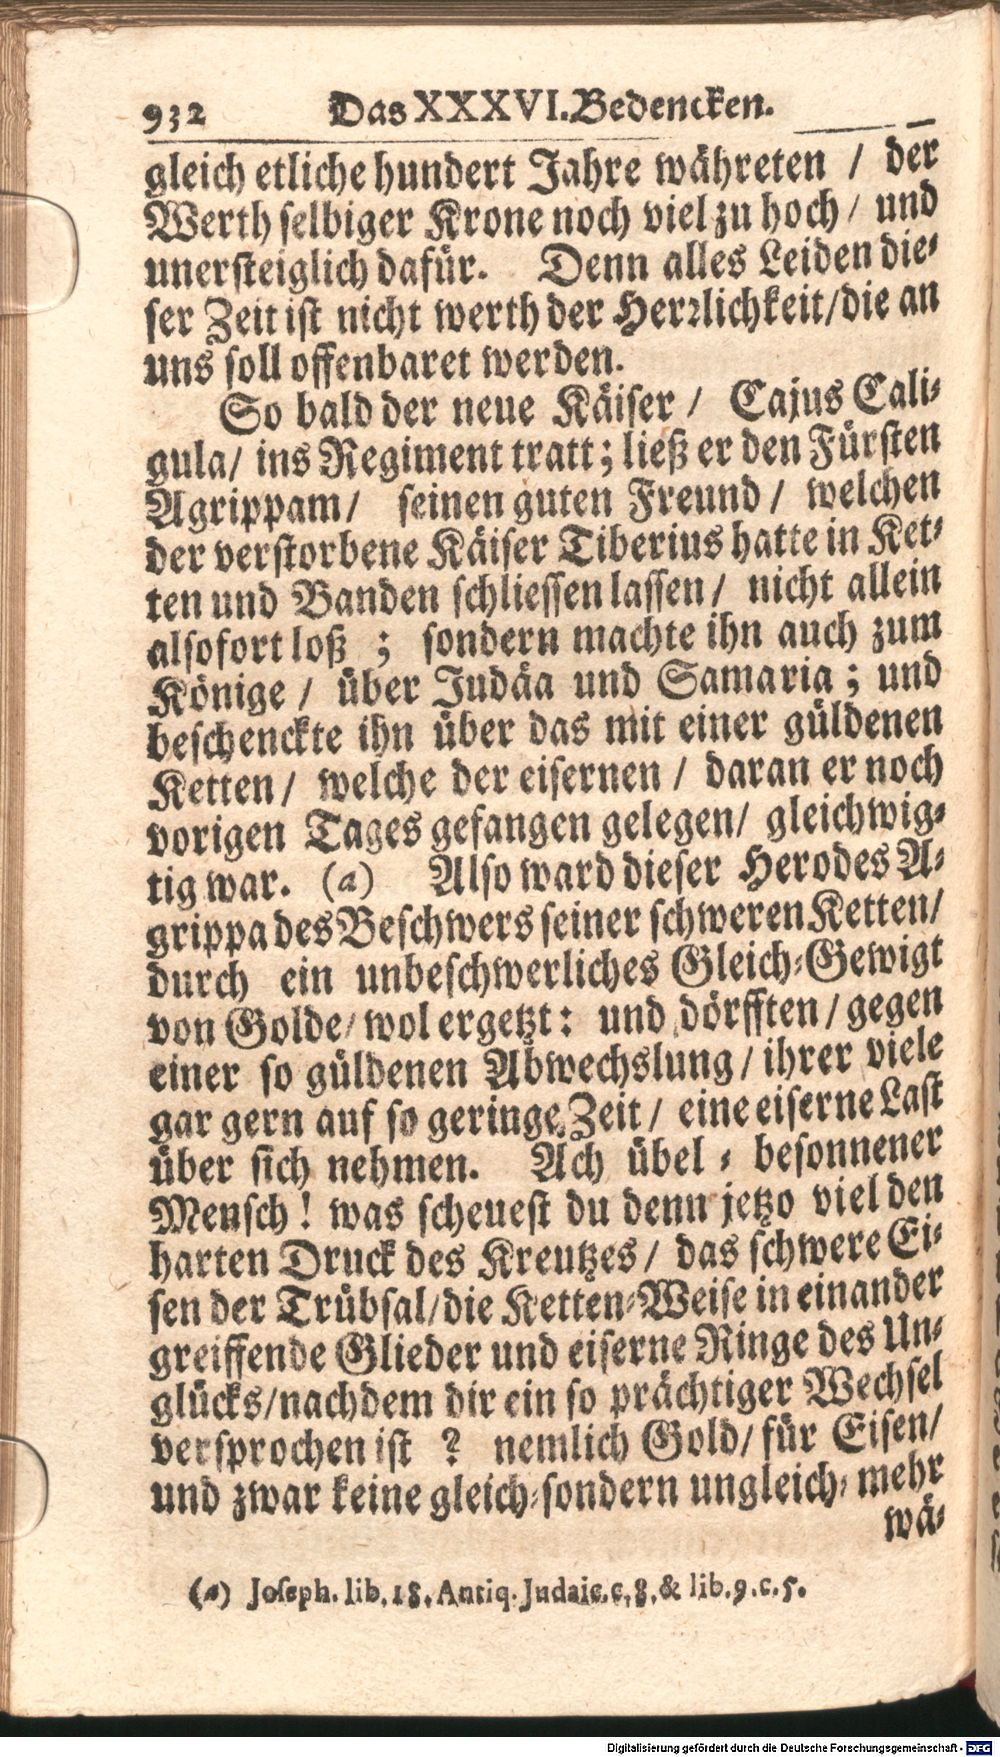 932 Das XXXVI. Bedencken.
gleich etliche hundert Jahre währeten / der
Werth selbiger Krone noch viel zu hoch / und
unersteiglich dafür. Denn alles Leiden die-
ser Zeit ist nicht werth der Herrlichkeit/die an
uns soll offenbaret werden.
So bald der neue Käiser / Cajus Cali-
gula/ ins Regiment tratt; ließ er den Fürsten
Agrippam/ seinen guten Freund / welchen
der verstorbene Käiser Tiberius hatte in Ket-
ten und Banden schliessen lassen / nicht allein
alsofort loß ; sondern machte ihn auch zum
Könige / über Judäa und Samaria ; und
beschenckte ihn über das mit einer güldenen
Ketten / welche der eisernen / daran er noch
vorigen Tages gefangen gelegen/ gleichwig-
tig war. (a) Also ward dieser Herodes A-
grippa des Beschwers seiner schweren Ketten/
durch ein unbeschwerliches Gleich-Gewigt
von Golde/ wol ergetzt: und dörfften / gegen
einer so güldenen Abwechslung / ihrer viele
gar gern auf so geringe Zeit / eine eiserne Last
über sich nehmen. Ach übel - besonnener
Mensch ! was scheuest du denn jetzo viel den
harten Druck des Kreutzes / das schwere Ei-
sen der Trübsal/die Ketten-Weise in einander
greiffende Glieder und eiserne Ringe des Un-
glücks/nachdem dir ein so prächtiger Wechsel
versprochen ist ? nemlich Gold/ für Eisen/
und zwar keine gleich-sondern ungleich-mehr
wä-
(a) Joseph. lib. 18. Antiq. Judaic. c. 8. & lib. 9. c. 5.
Digitalisierung gefördert durch die Deutsche Forschungsgemeinschaft - DFG